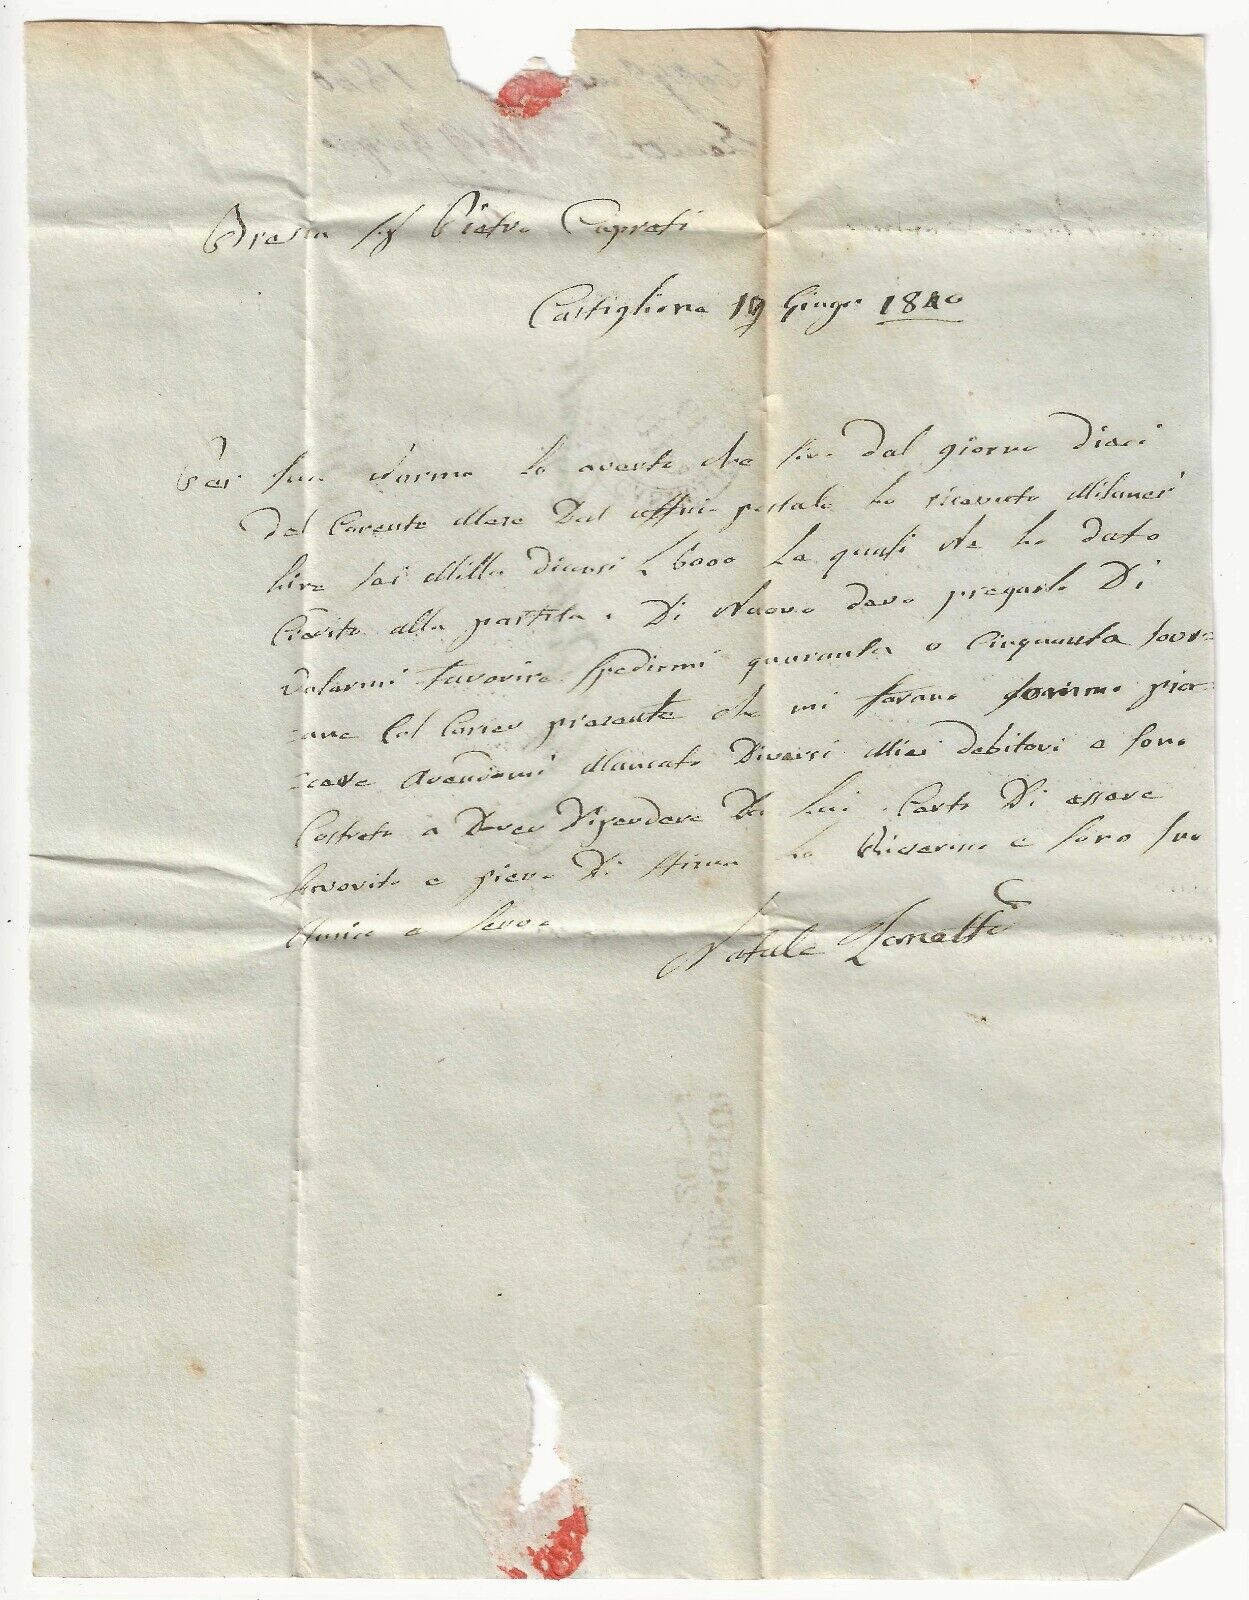 Brescia Sig Pietro Caprati
Castiglione 19 Giugno 1840
Per sua Norma lo averto che sino dal giorno dieci
del Corente Mese Dal uffici postale ho ricevuto Milanesi
Lire sei Milla dicensi L 6000 La quali Ne ho dato
Credito alla partita. Di Nuovo devo pregarlo Di
volermi Favorire Spedirmi quaranta o Cinquanta Sovr=
ane Col Corier presente che mi farano somimo pia=
cere Avendomi Mancato Diversi Miei debitori e sono
Costreto a Dover Dipendere Da Lui. Certo Di essere
favorito e pieno Di Stima La Riverisco e sono suo
Amico e Servo
Natale